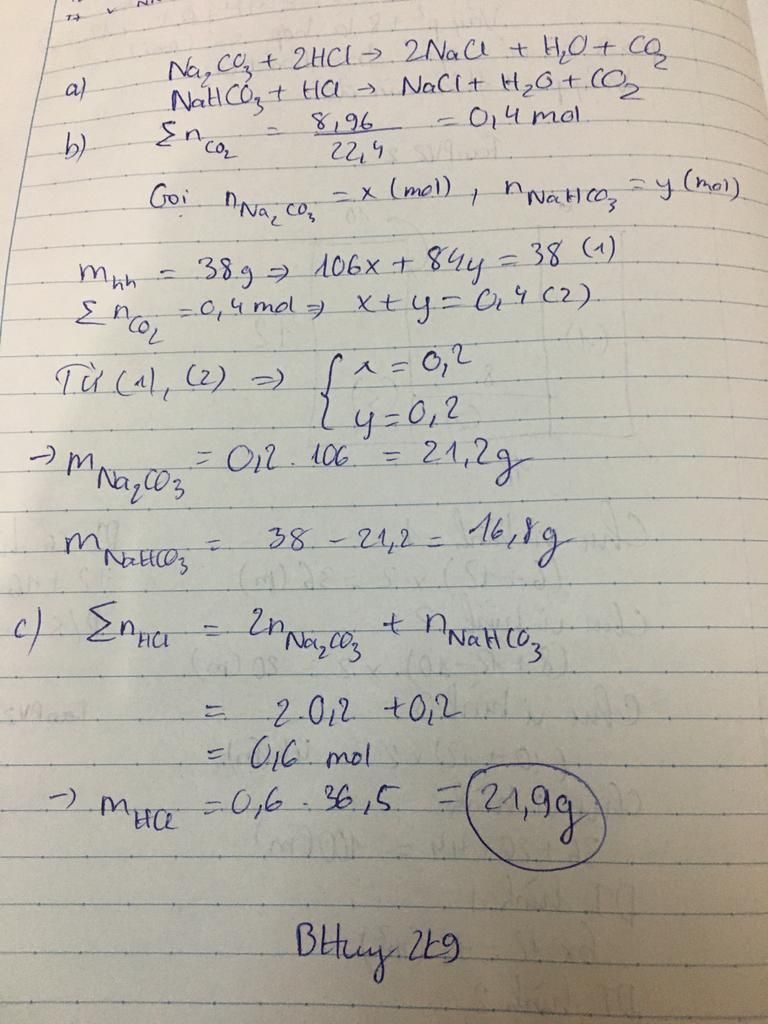 a) Na₂CO₃ + 2HCl → 2NaCl + H₂O + CO₂
NaHCO₃ + HCl → NaCl + H₂O + CO₂
b) Σn_CO₂ = 8,96/22,4 = 0,4 mol
Gọi n_Na₂CO₃ = x (mol), n_NaHCO₃ = y (mol)
m_hh = 38g ⇒ 106x + 84y = 38 (1)
Σn_CO₂ = 0,4 mol ⇒ x + y = 0,4 (2)
Từ (1), (2) ⇒ { x = 0,2
y = 0,2
→ m_Na₂CO₃ = 0,2 . 106 = 21,2g
m_NaHCO₃ = 38 - 21,2 = 16,8g
c) Σn_HCl = 2n_Na₂CO₃ + n_NaHCO₃
= 2.0,2 + 0,2
= 0,6 mol
→ m_HCl = 0,6 . 36,5 = 21,9g
BHuy 2k9